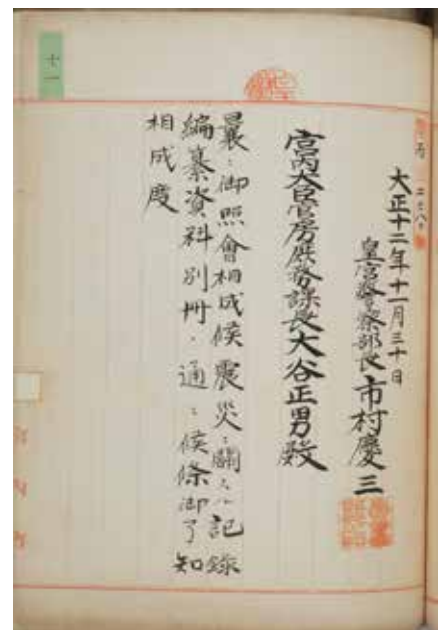 十一
丙
大正十二年十一月三十日
皇宮警察部長市村慶三
宮内大臣官房庶務課長大谷正男殿
曩ニ御照會相成候震災ニ關スル記録
編纂資料別冊ノ通ニ候條御了知
相成度